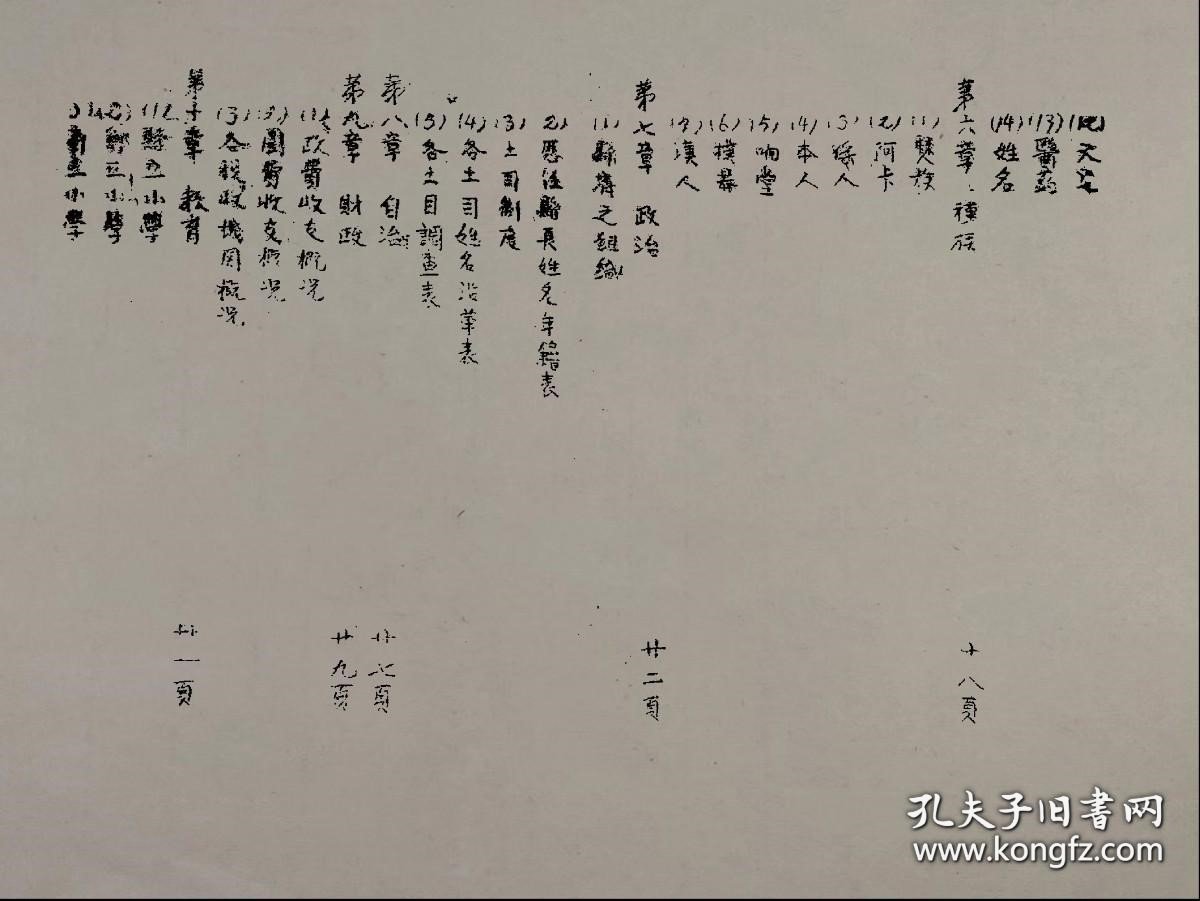 (12) 天文
(13) 醫药
(14) 姓名
第六章 種族 十八頁
(1) 僰族
(2) 阿卡
(3) 倮人
(4) 本人
(5) 响堂
(6) 撲暴
(7) 漢人
第七章 政治 廿二頁
(1) 縣府之組織
(2) 歷任縣長姓名年籍表
(3) 土司制度
(4) 各土司姓名沿革表
(5) 各土目調查表
第八章 自治 廿七頁
第九章 財政 廿九頁
(1) 政費收支概况
(2) 團費收支概况
(3) 各税收機関概况
第十章 教育 一頁
(1) 縣立小學
(2) 立小學
立小學
孔夫子旧书网
www.kongfz.com